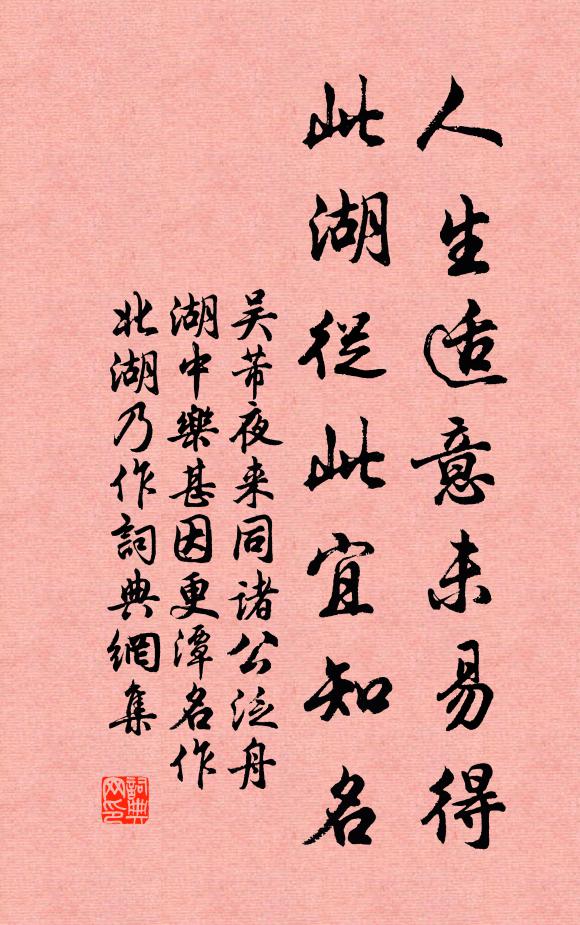 人生适意未易得
此湖從此宜知名
吴芾夜来同諸公泛舟
湖中樂甚因更潭名作
北湖乃作詞典網集
詞典网印